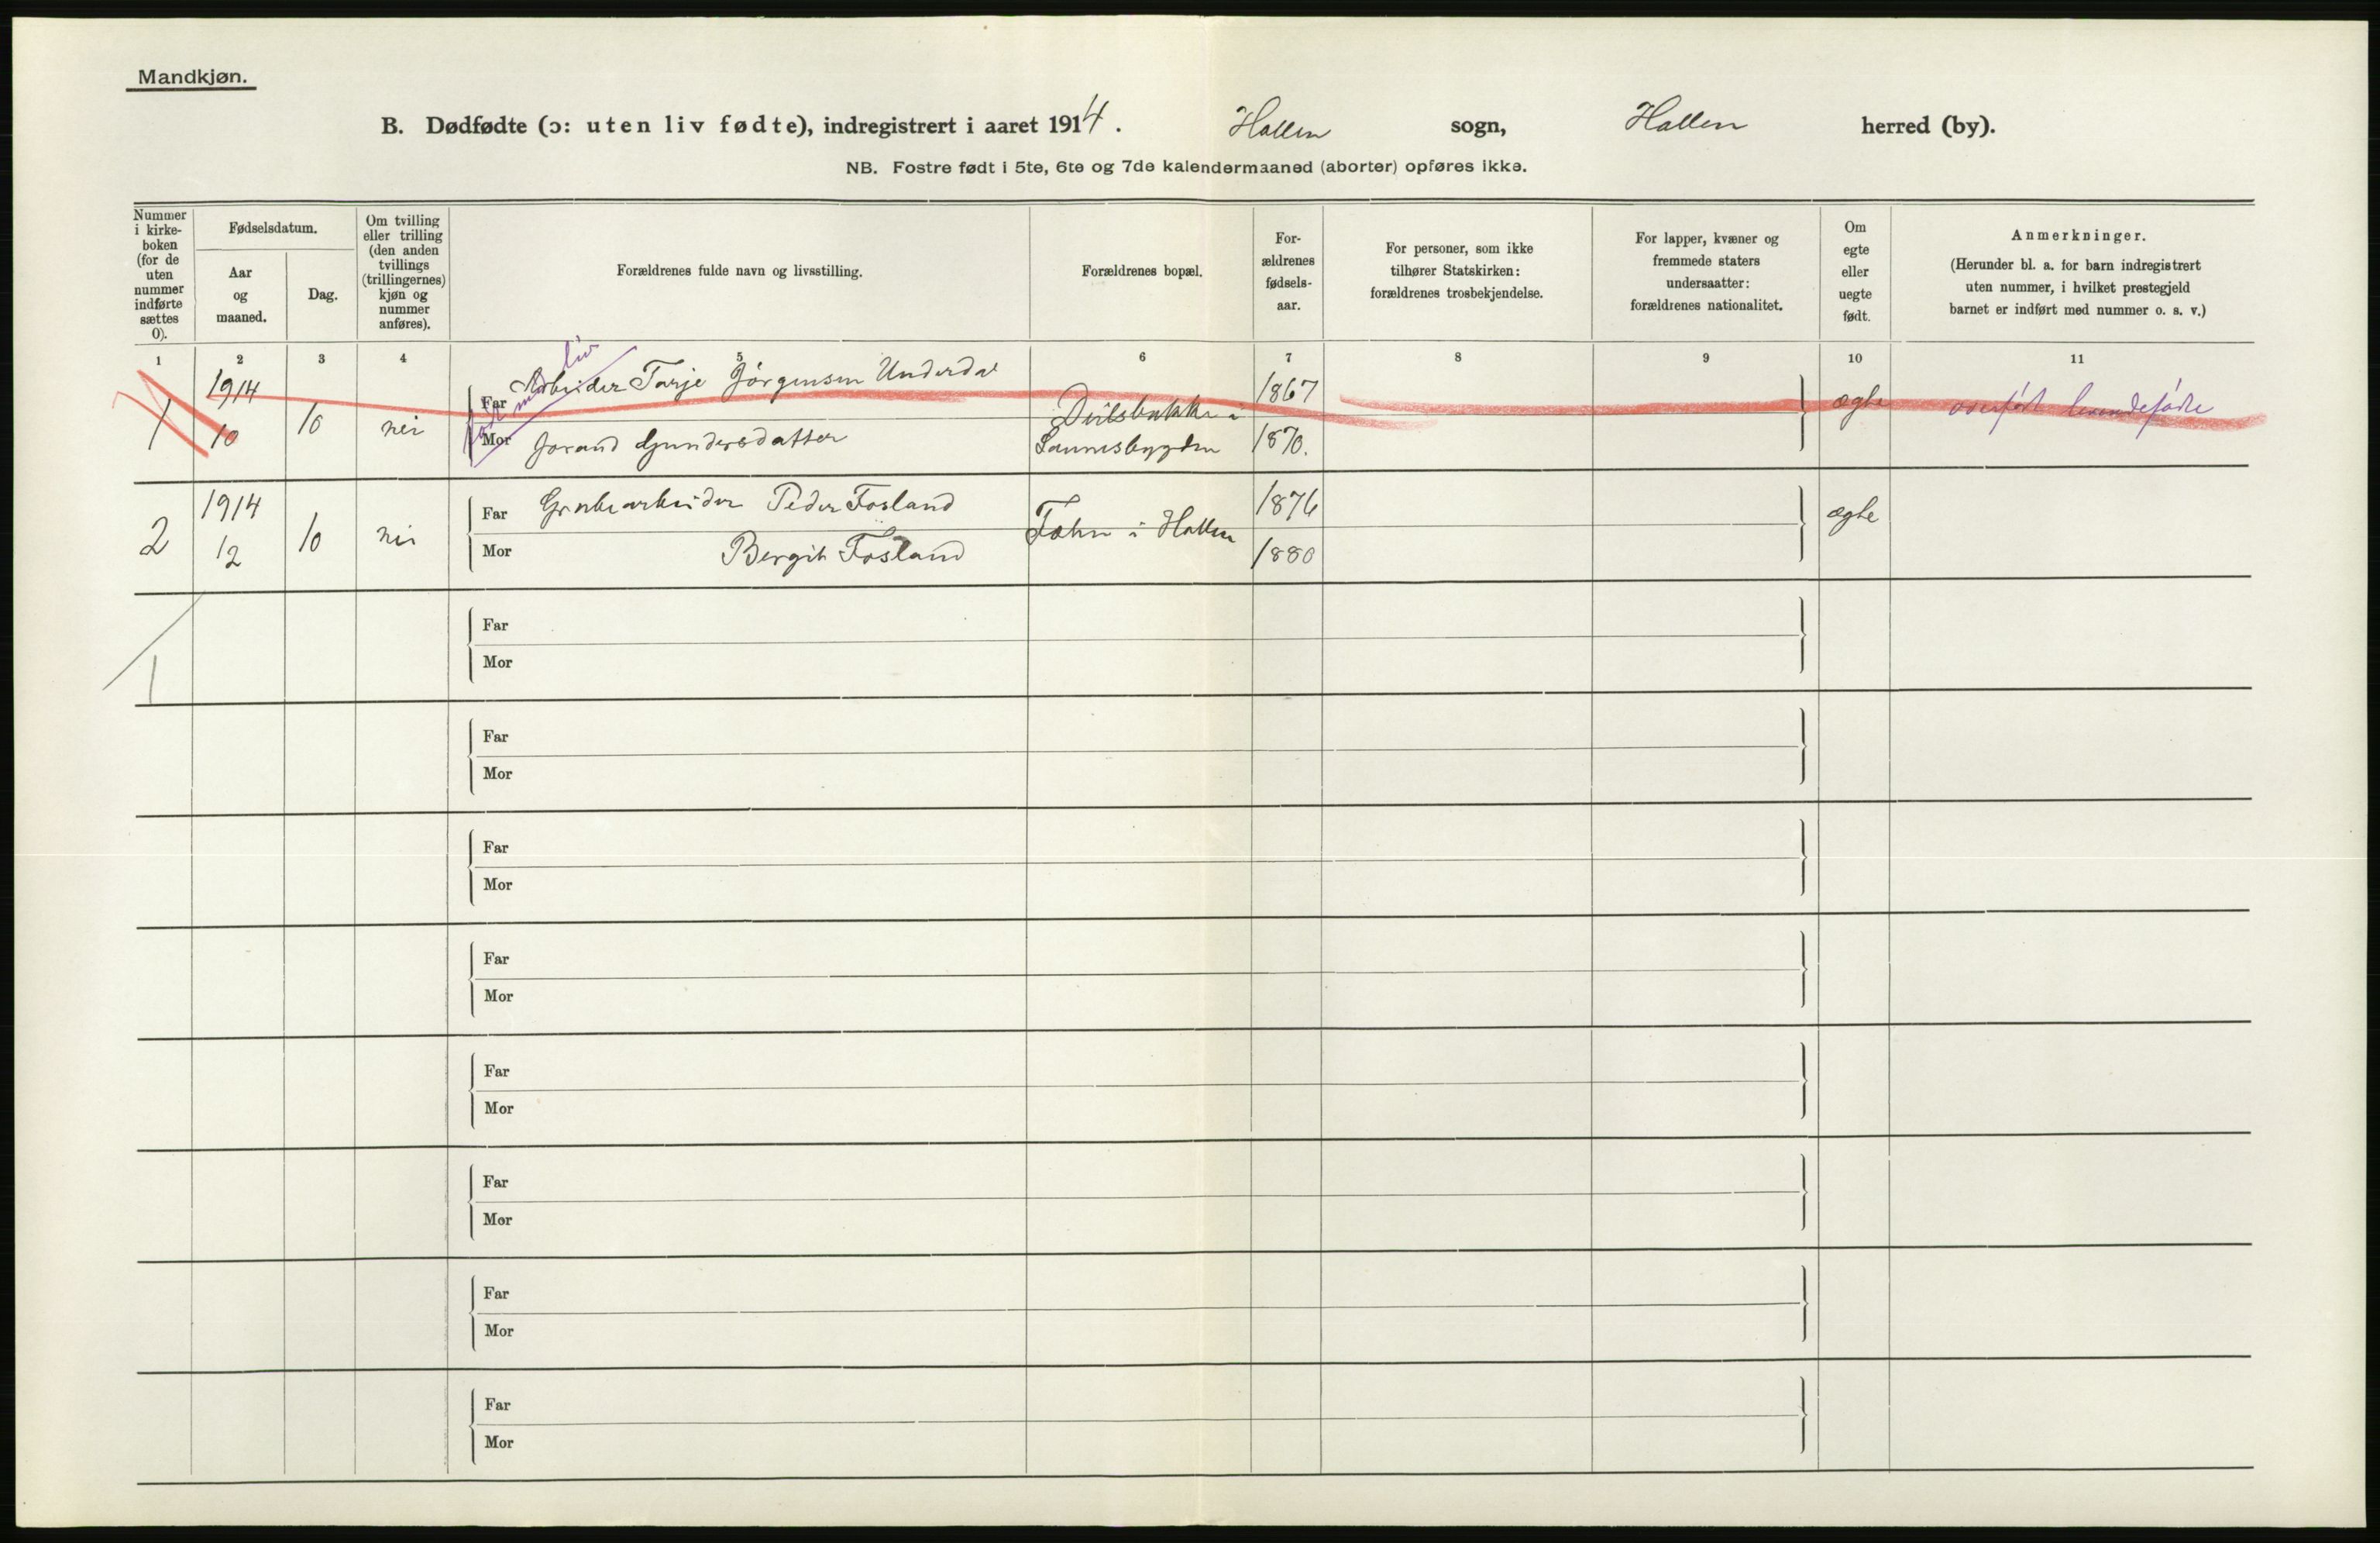 Mandkjøn.
B. Dødfødte (ɔ: uten liv fødte), indregistrert i aaret 1914. Hollen sogn, Hollen herred (by).
NB. Fostre født i 5te, 6te og 7de kalendermaaned (aborter) opføres ikke.
Nummer i kirke-boken (for de uten nummer indførte sættes 0).
Fødselsdatum.
Aar og maaned.
Dag.
Om tvilling eller trilling (den anden tvillings (trillingernes) kjøn og nummer anføres).
Forældrenes fulde navn og livsstilling.
Forældrenes bopæl.
For-ældrenes fødsels-aar.
For personer, som ikke tilhører Statskirken: forældrenes trosbekjendelse.
For lapper, kvæner og fremmede staters undersaatter: forældrenes nationalitet.
Om egte eller uegte født.
Anmerkninger.
(Herunder bl. a. for barn indregistrert uten nummer, i hvilket prestegjeld barnet er indført med nummer o. s. v.)
1 2 3 4 5 6 7 8 9 10 11
født med liv
1 1914 10 16 nei
Far Arbeider Tarje Jörgensen Underdal 1867 ægte overført levendefødte
Mor Jorand Gundersdatter i Lannesbygden 1870.
2 1914 12 10 nei
Far Grubearbeider Peder Fosland Fahn i Hollen 1876 ægte
Mor Bergit Fosland 1880
1
Far
Mor
Far
Mor
Far
Mor
Far
Mor
Far
Mor
Far
Mor
Far
Mor
Far
Mor